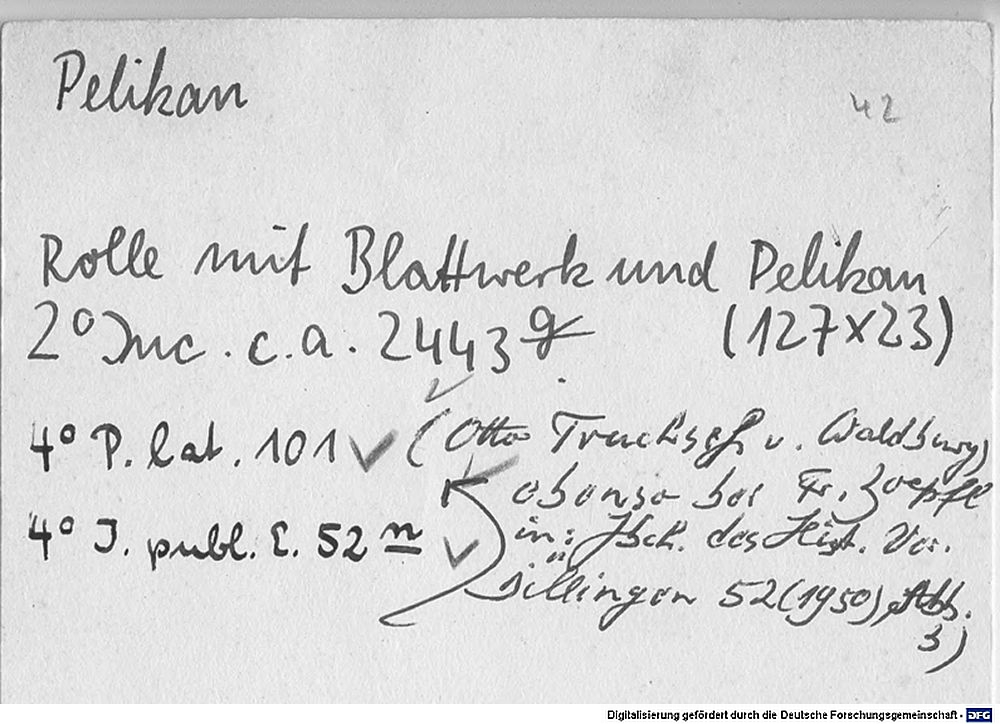 Pelikan
42
Rolle mit Blattwerk und Pelikan
2° Inc. c. a. 2443 g (127x23)
4° P. lat. 101 ✓ (Otto Truchseß v. Waldburg)
ebenso bei Fr. Zoepfl
4° J. publ. E. 52 n ✓ in: Jbch. des Hist. Ver.
Dillingen 52 (1950), Abb.
3)
Digitalisierung gefördert durch die Deutsche Forschungsgemeinschaft - DFG